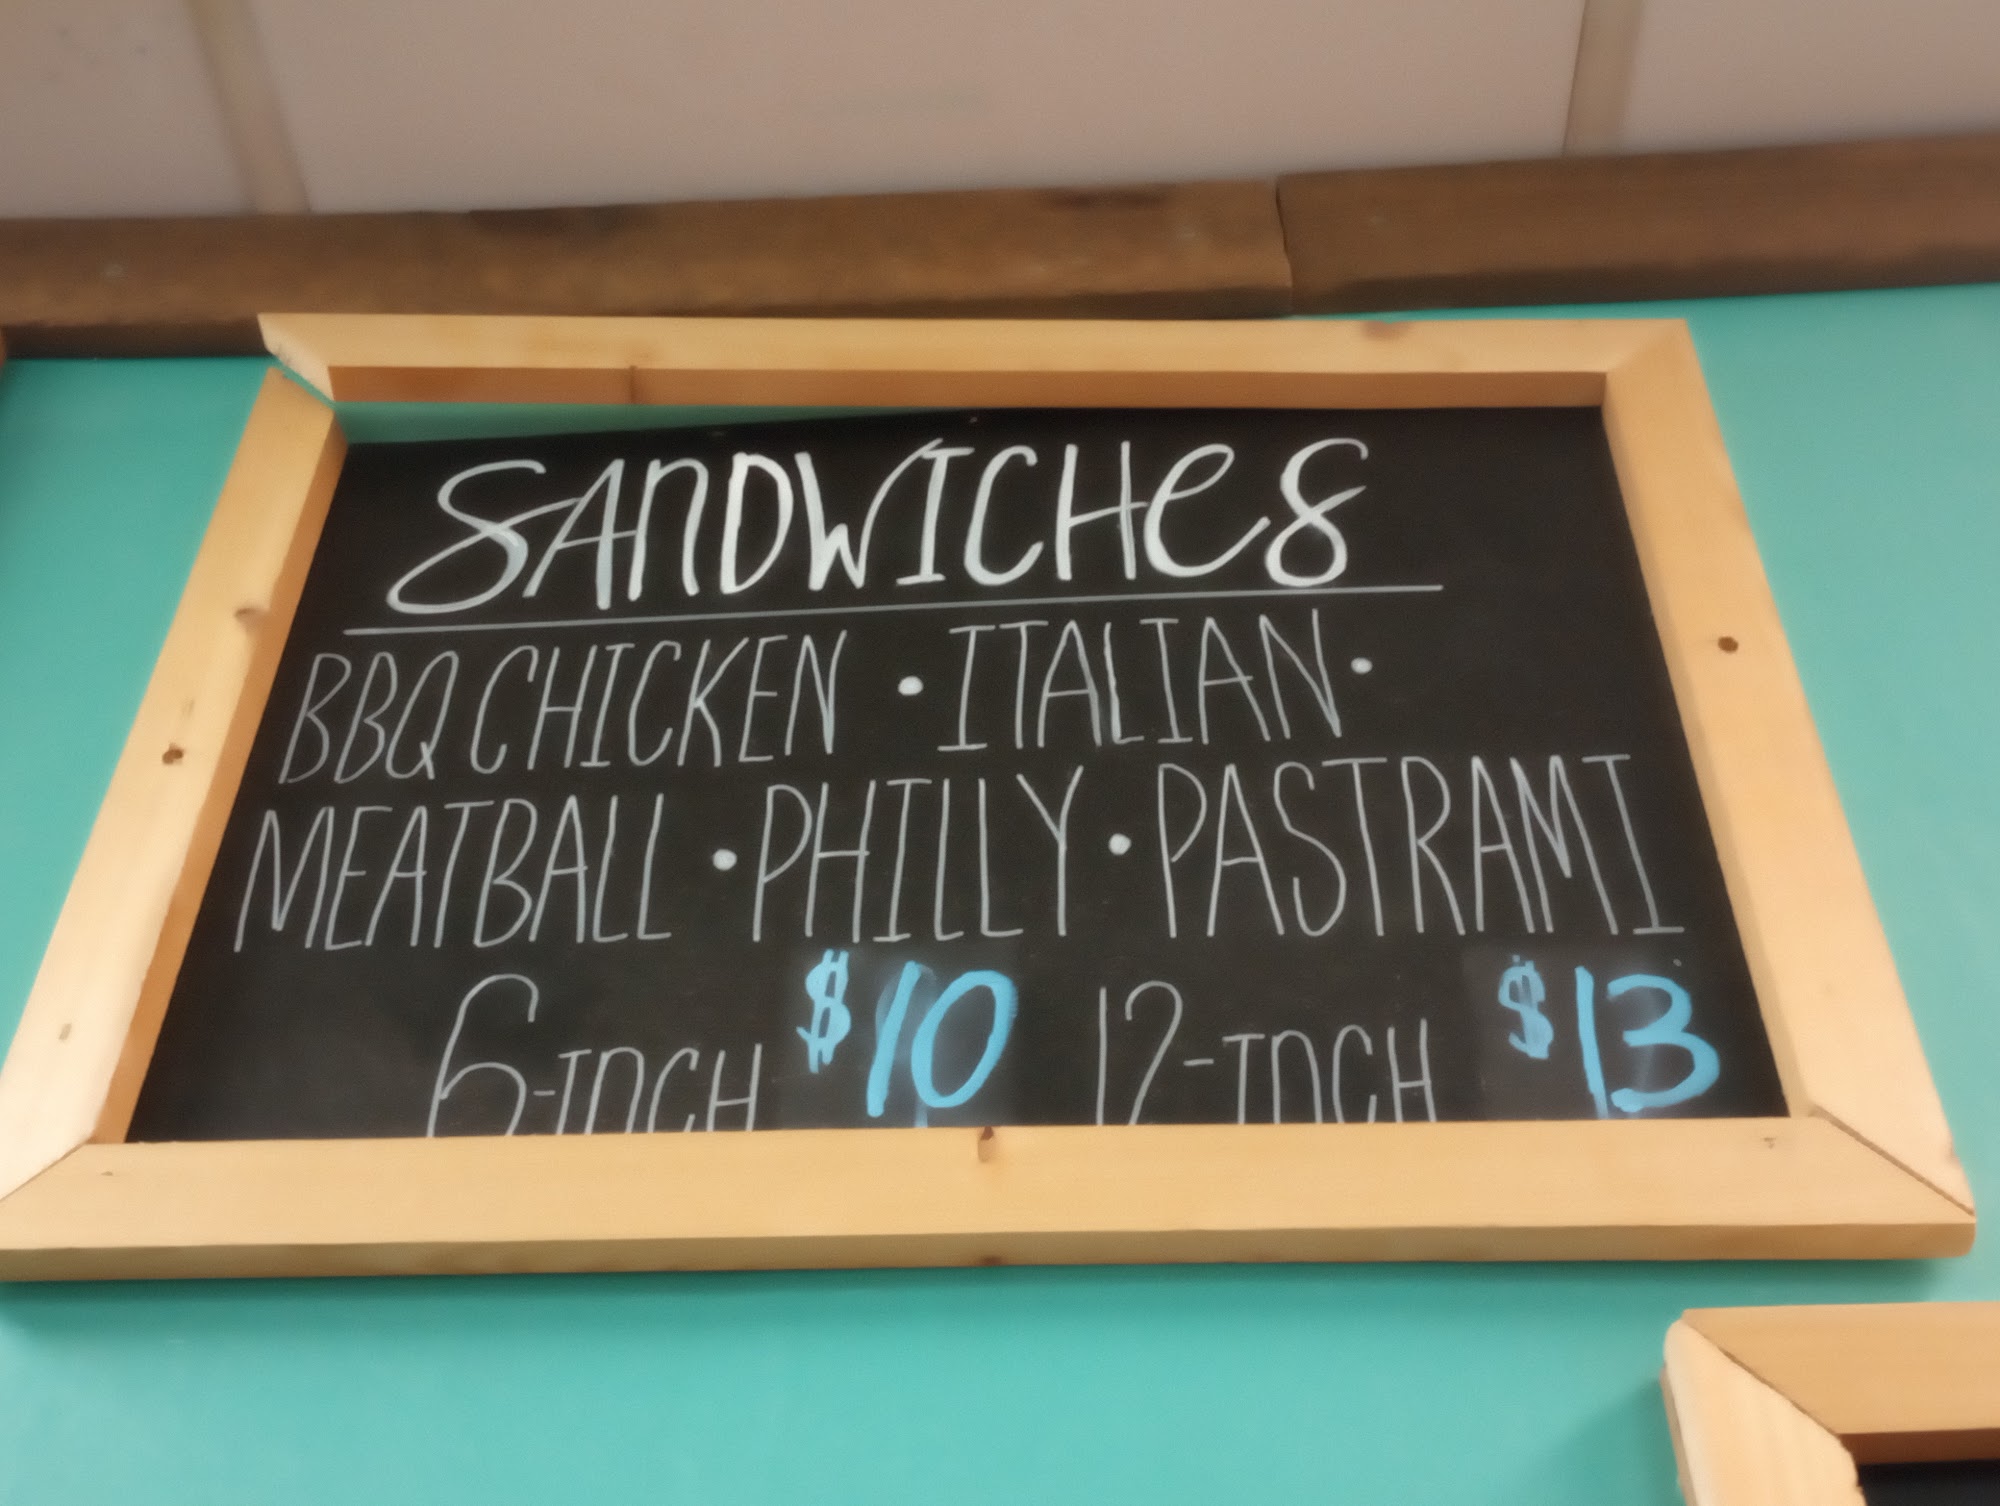 SANDWICHES
BBQ CHICKEN • ITALIAN •
MEATBALL • PHILLY • PASTRAMI
6-INCH $10 12-INCH $13